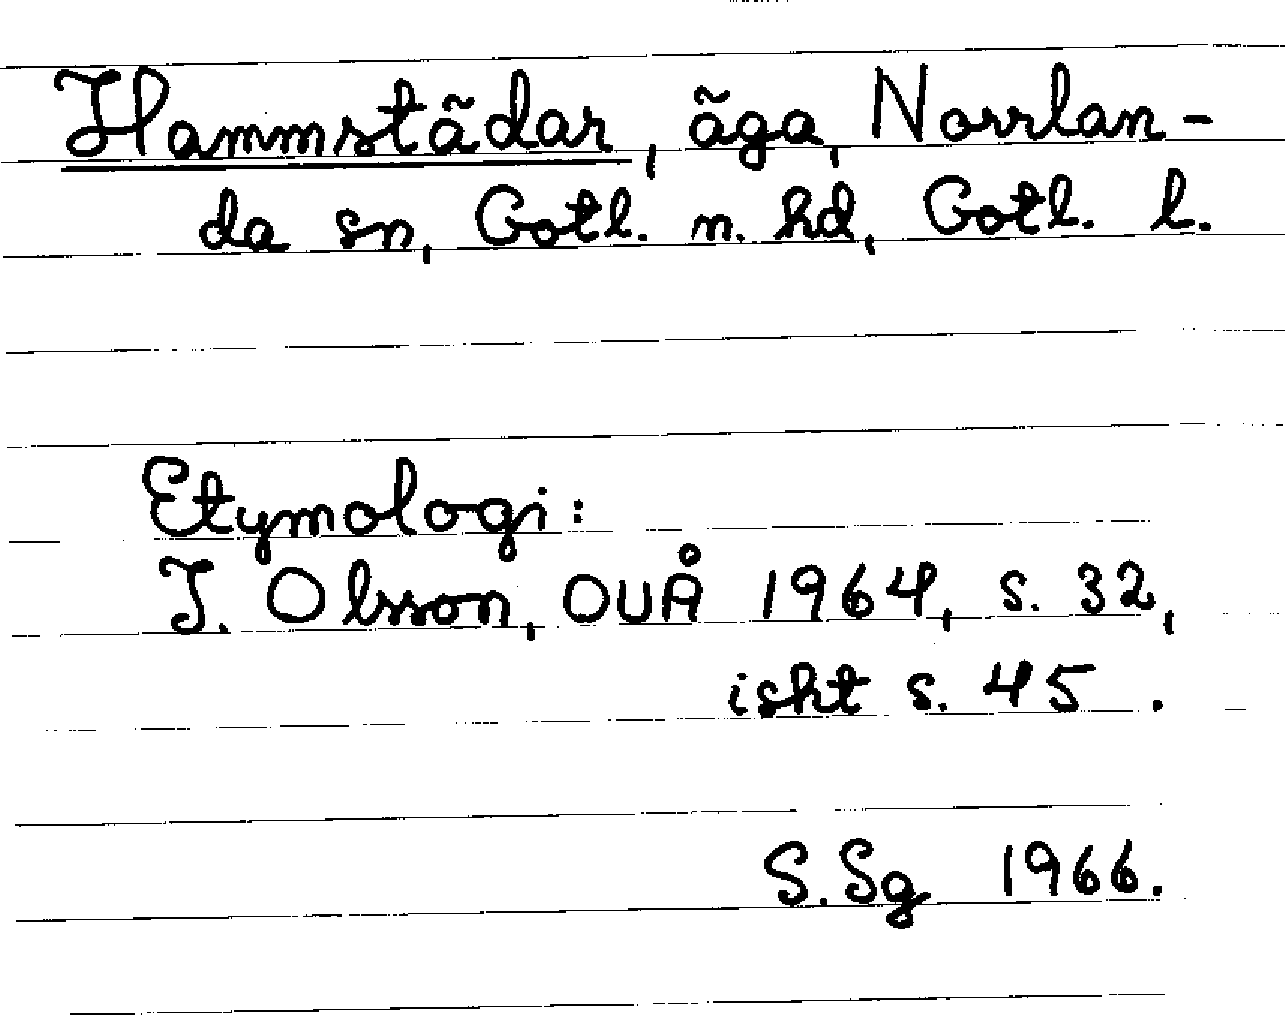 Hammstädar, äga, Norrlan-
da sn, Gotl. n. hd, Gotl. l.
Etymologi:
I. Olsson, OUÅ 1964, s. 32,
isht s. 45.
S.Sg 1966.